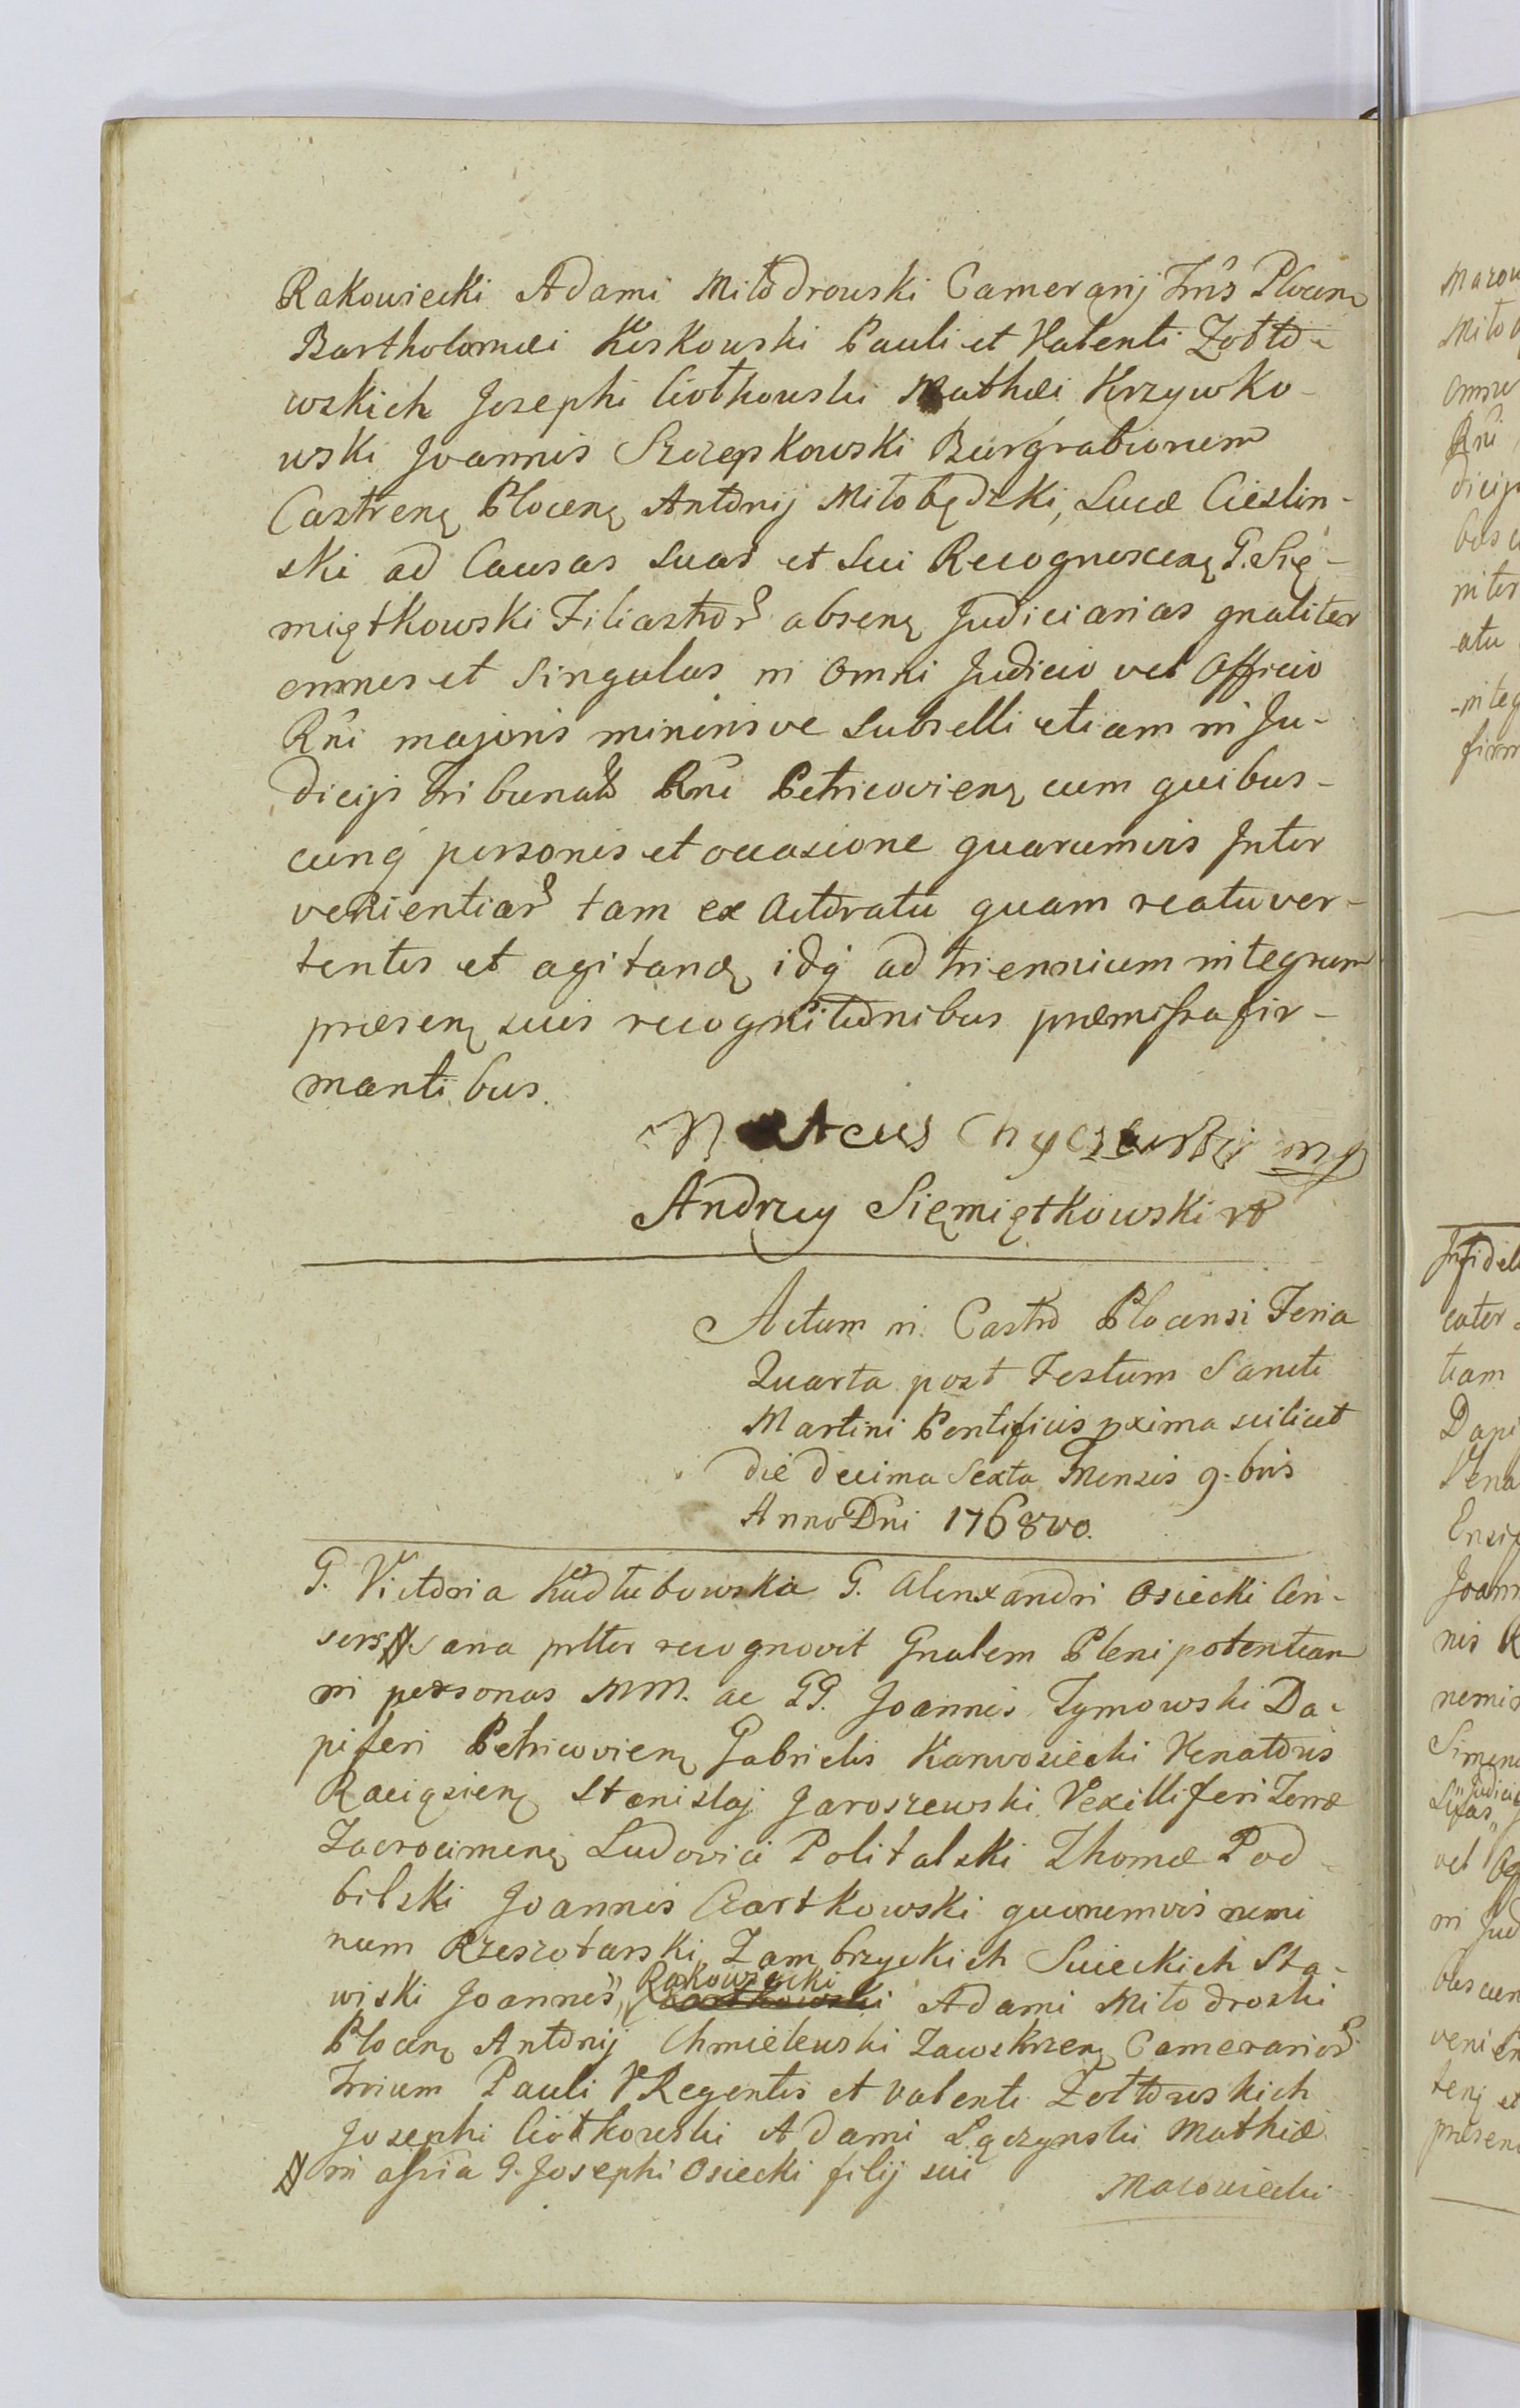 Rakowiecki Adami Miłodrowski Cameranj Trris Plocen
Bartholomæi Keskowski Pauli et Valenti Zołto-
wskich Josephi Ciołkowski Mathæi Krzywko-
wski Joannis Szczepkowski Burgrabionum
Castren Plocen Antonij Miłobędzki, Lucæ Cieslin-
ski ad Causas suas et sui Recognoscen G. Się-
miętkowski Filiastror absen Judiciarias gnaliter
omnes et singulas in omni Judicio vel Officio
Rni majoris minorisve subselli etiam in Ju-
dicijs Tribunal Rni Petricovien cum quibus-
cunq personis et occasione quarumvis Inter
venientiar tam ex actoratu quam reatu ver-
tentes et agitand idq ad triennium integrum
præsen suis recognitionibus præmissa fir-
mantibus.
Chyczewski mp
Andrzey Sięmiętkowski
Actum in Castro Plocensi Feria
Quarta post Festum Sancti
Martini Pontificis pxima scilicet
die decima sexta Mensis 9-bris
Anno Dni 1768vo.
G. Victoria Kudłubowska G. Alexandri Osiecki Con-
sors ana pltter recognovit Gnalem Plenipotentiam
in personas MM. ac GG. Joannis Tymowski Da-
piferi Petricovien Gabrielis Karwosiecki Venatoris
Raciązien Stanislaj Jaroszewski Vexilliferi Terræ
Zacrocimen Ludovici Politalski Thomæ Pod-
bilski Joannis Czartkowski quorumvis nomi
num Rzeszotarski, Zambrzyckich Swieckich Sta-
wiski Joannis Rakowiecki Adami Miłodroski
Plocen Antonij Chmielewski Zawskrzen Camerarior
Trrium Pauli VRegentis et Valenti Zołtowskich
Josephi Ciołkowski Adami Łączynski Mathiæ
in assia G. Josephi Osiecki filij sui
Macowiecki